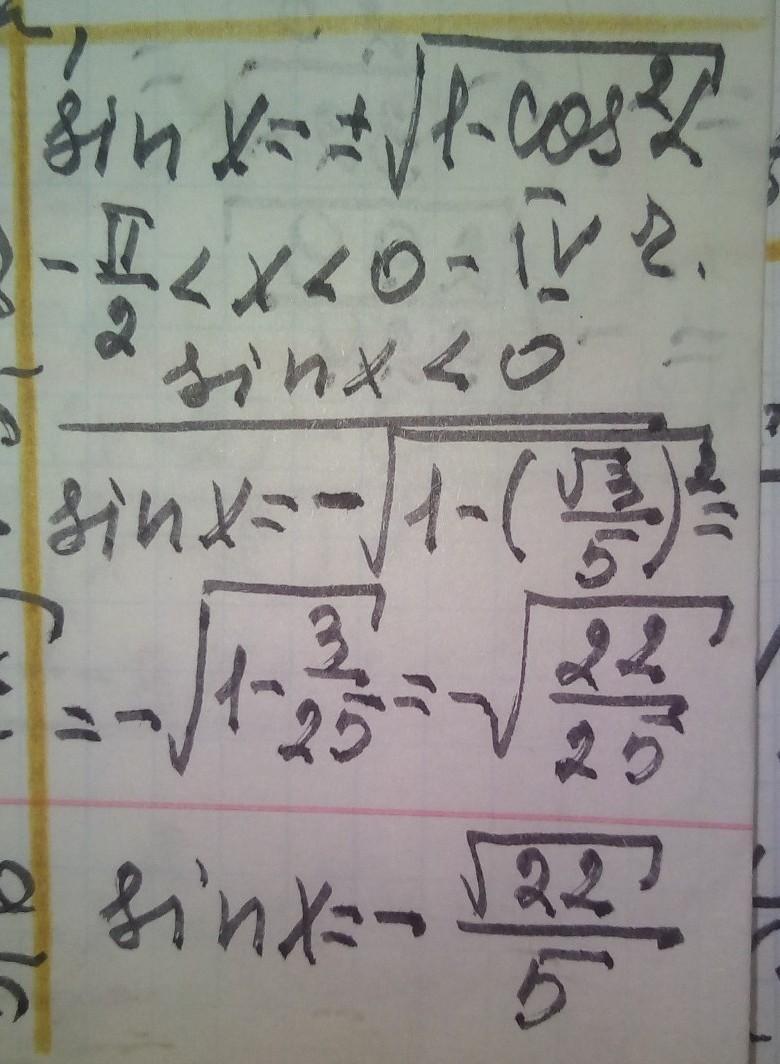 sin x = ±√(1 - cos²x)
-π/2 < x < 0 - IV г.
sin x < 0
sin x = -√(1 - (√3/5)²) =
= -√(1 - 3/25) = -√(22/25)
sin x = - √22/5